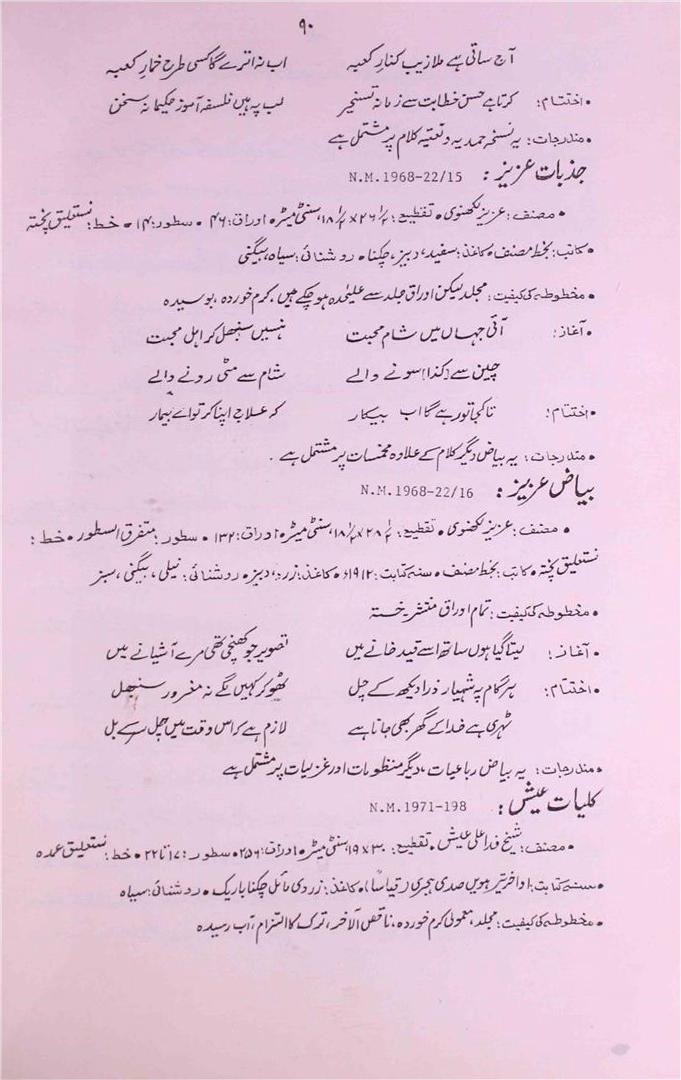 ۹۰
آج ساقی ہے ملا زیب کنار کعبہ اب نہ اترے گا کسی طرح خمار کعبہ
• اختتام: کرتا ہے حسن خطابت سے زمانہ تسخیر لب پہ ہیں فلسفہ آموز حکیمانہ سخن
• مندرجات: یہ نسخہ حمدیہ و نعتیہ کلام پر مشتمل ہے
جذبات عزیز: N.M.1968-22/15
• مصنف: عزیز لکھنوی • تقطیع: ۲۶½ × ۱۸½ سنٹی میٹر • اوراق: ۴۶ • سطور: ۱۴ • خط: نستعلیق پختہ
• کاتب: بخط مصنف • کاغذ: سفید، دبیز، چکنا • روشنائی: سیاہ، بیگنی
• مخطوطہ کی کیفیت: مجلد لیکن اوراق جلد سے علیحدہ ہو چکے ہیں، کرم خوردہ، بوسیدہ
• آغاز: آئی جہاں میں شام محبت ہنسیں سنبھل کر اہل محبت
چین سے [کذا] سونے والے شام سے مٹی رونے والے
• اختتام: تا کجا تو رہے گا اب بیکار کہ علاج اپنا کر تو اے بیمار
• مندرجات: یہ بیاض دیگر کلام کے علاوہ مخمسات پر مشتمل ہے۔
بیاض عزیز: N.M.1968-22/16
• مصنف: عزیز لکھنوی • تقطیع: ۲۸½ × ۱۸½ سنٹی میٹر • اوراق: ۱۳۲ • سطور: متفرق السطور • خط:
نستعلیق پختہ • کاتب: بخط مصنف • سنہ کتابت: ۱۹۱۲ء • کاغذ: زرد، دبیز • روشنائی: نیلی، بیگنی، سبز
• مخطوطہ کی کیفیت: تمام اوراق منتشر خستہ
• آغاز: لیتا گیا ہوں ساتھ اسے قید خانے میں تصویر جو کھنچی تھی مرے آشیانے میں
• اختتام: ہر گام پہ شہیار ذرا دیکھ کے چل ٹھوکر کہیں لگے نہ مغرور سنبھل
ٹہری ہے خدا کے گھر بھی جانا ہے لازم ہے کہ اس وقت میں چل سر کے بل
• مندرجات: یہ بیاض رباعیات، دیگر منظومات اور غزلیات پر مشتمل ہے
کلیات عیش: N.M.1971-198
• مصنف: شیخ فدا علی عیش • تقطیع: ۳۰ × ۱۹ سنٹی میٹر • اوراق: ۲۵۶ • سطور: ۱۷ تا ۲۲ • خط: نستعلیق عمدہ
• سنہ کتابت: اواخر تیرہویں صدی ہجری (قیاساً) • کاغذ: زردی مائل چکنا باریک • روشنائی: سیاہ
• مخطوطہ کی کیفیت: مجلد، معمولی کرم خوردہ، ناقص الآخر، ترک کا التزام، آب رسیدہ